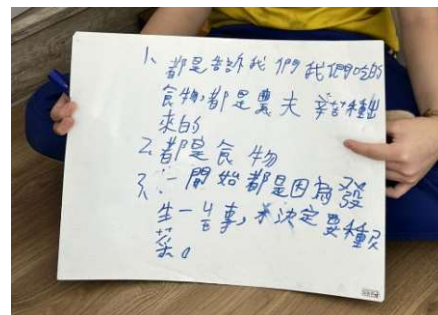 1、都是告訴我們我們吃的
食物,都是農夫辛苦種出
來的
2、都是食物
3、一開始都是因為發
生一些事,才決定要種
菜。